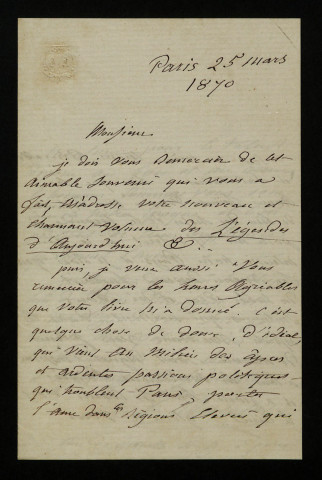 Paris 25 mars
1870
Monsieur
je dois vous remercier de cet
aimable souvenir qui vous a
fait m'adresser votre nouveau et
charmant volume des Légendes
d'Aujourd'hui
puis je veux aussi vous
remercier pour les heures agréables
que votre livre m'a donné. c'est
quelque chose de doux, d'idéal,
qui vient au milieu des
et ardentes passions politiques
qui troublent Paris, porter
l'âme dans les régions élevées qui